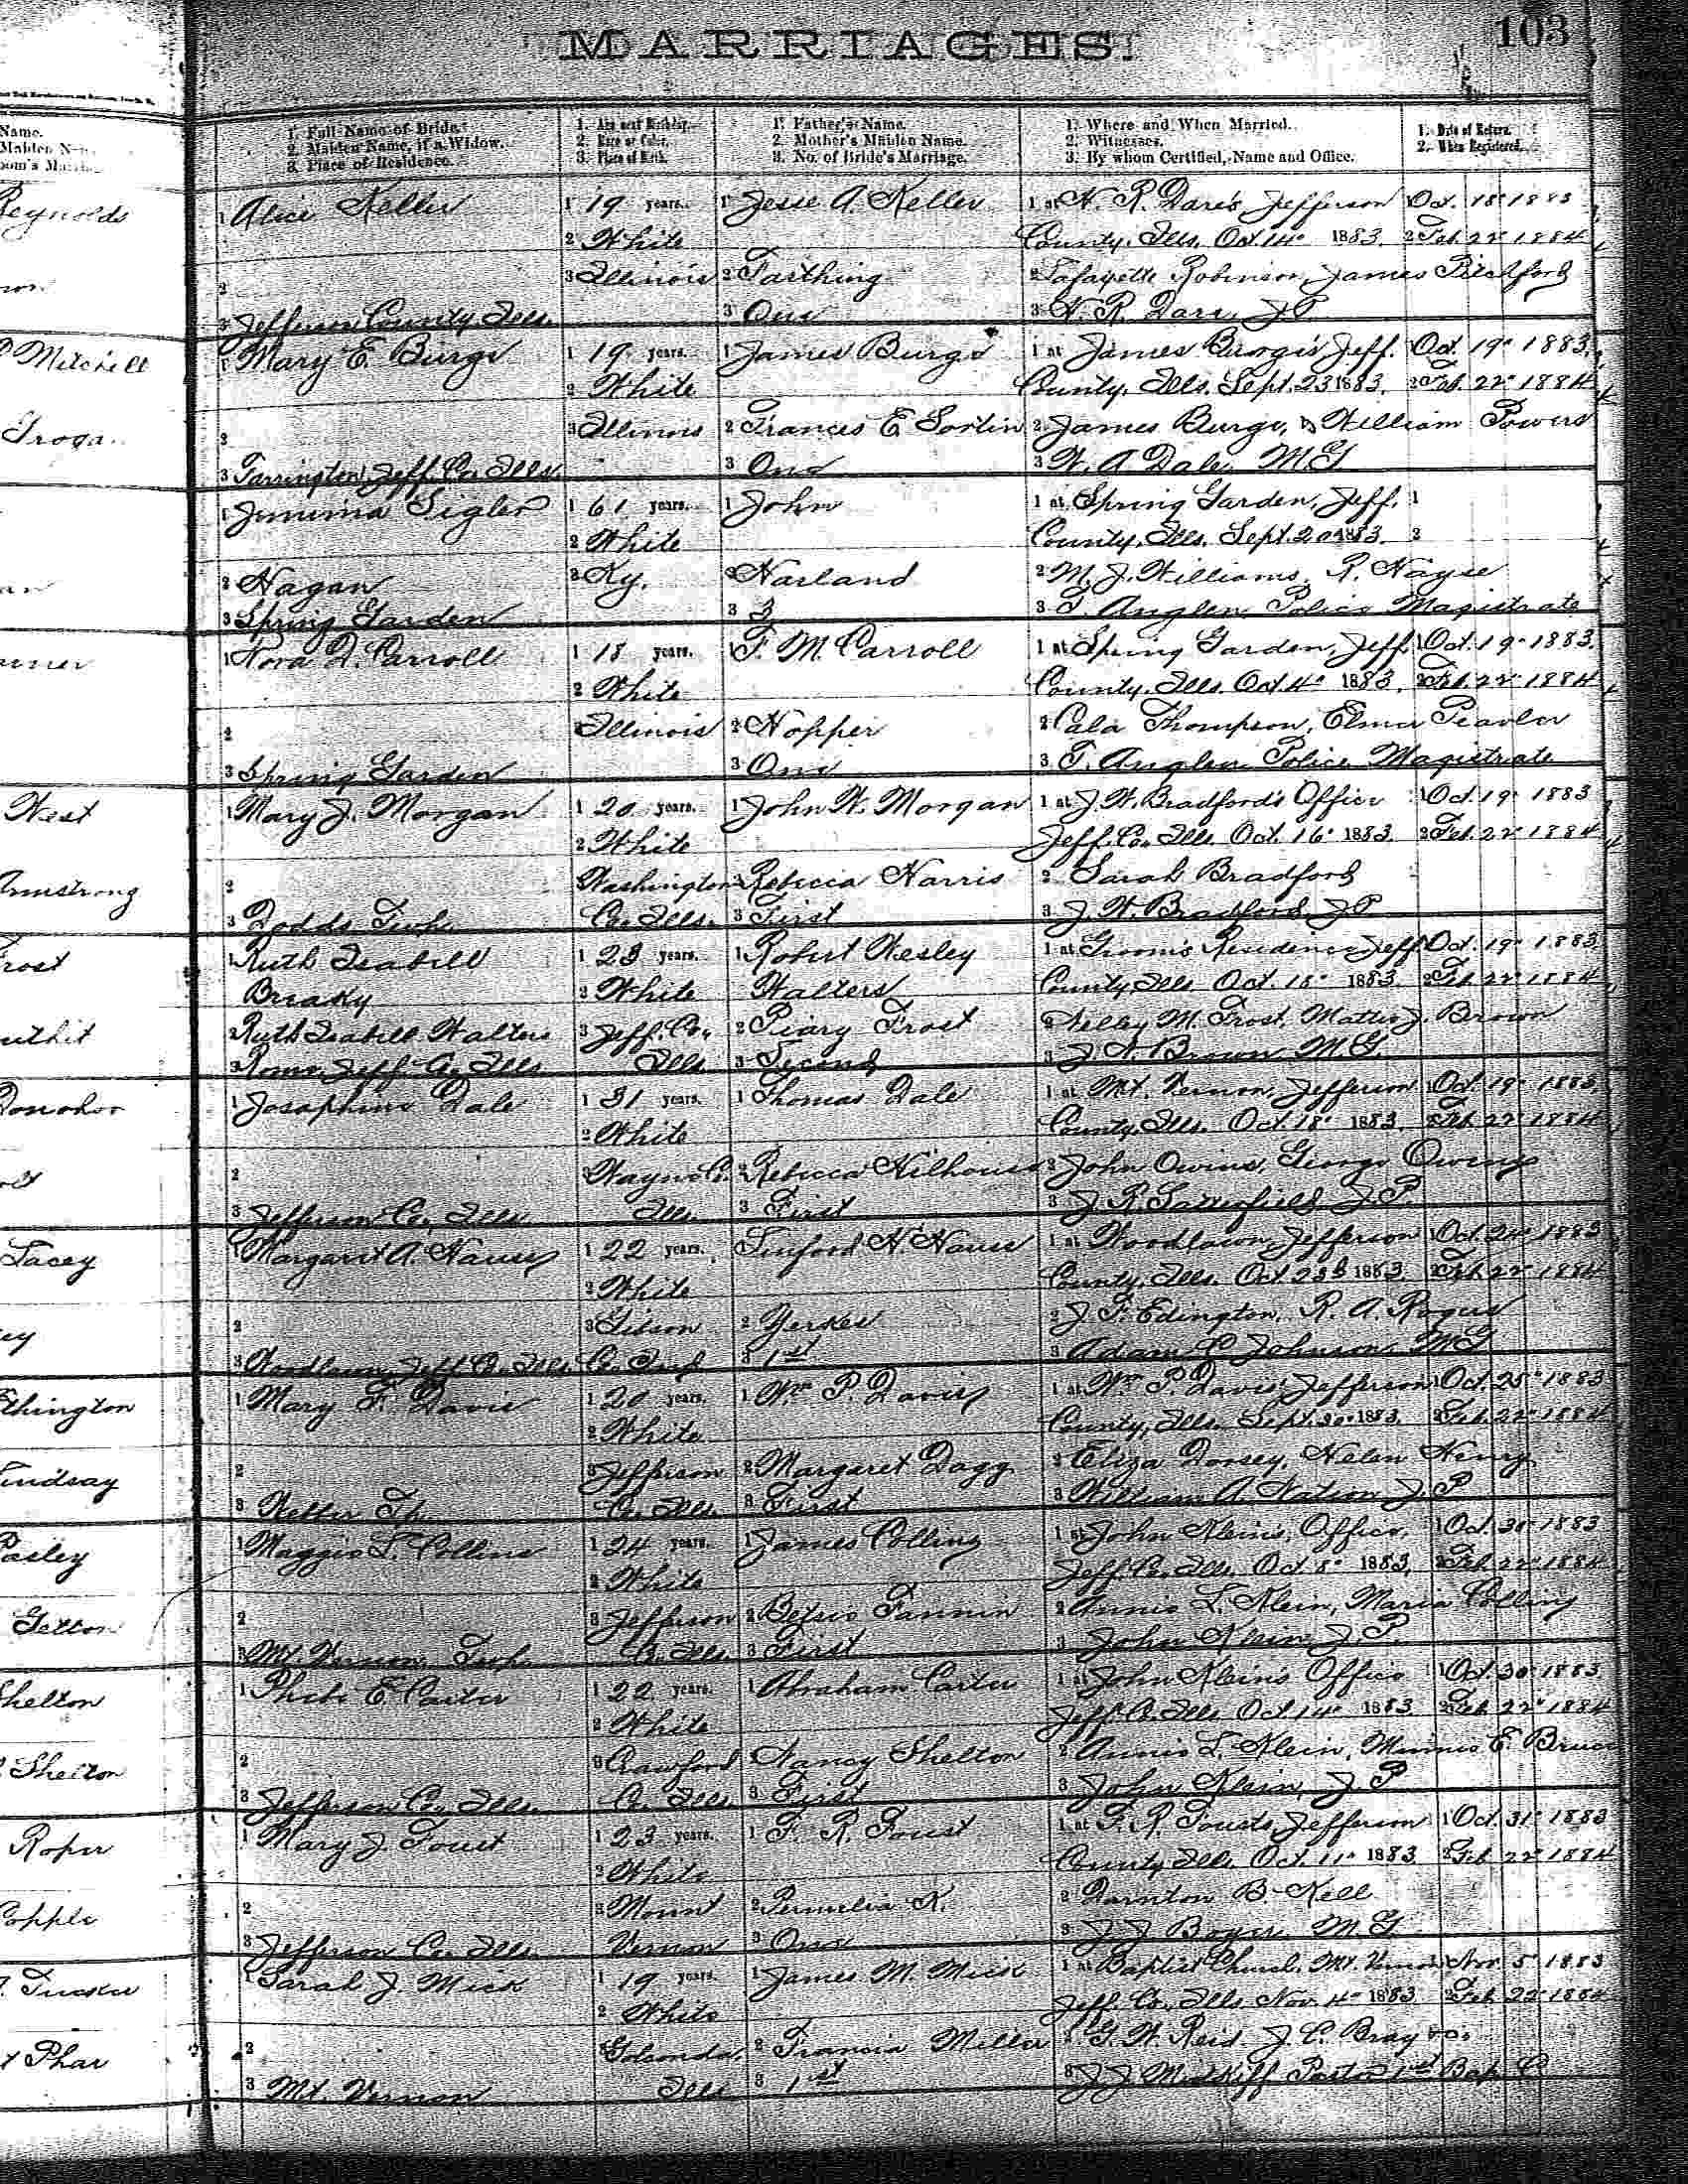 MARRIAGES.
103
1. Full Name of Bride.
2. Maiden Name, if a Widow.
3. Place of Residence.
1. Age next Birthday.
2. Race or Color.
3. Place of Birth.
1. Father's Name.
2. Mother's Maiden Name.
3. No. of Bride's Marriage.
1. Where and When Married.
2. Witnesses.
3. By whom Certified, Name and Office.
1. Date of Return.
2. When Registered.
Name.
Maiden
Reynolds
1 Alice Keller 1 19 years. 1 Jesse A. Keller 1 at N. R. Dare's Jefferson 1 Oct. 18" 1883
2 White County, Ills. Oct 14" 1883. 2 Feb. 22" 1884
2 3 Illinois 2 Farthing 2 Lafayette Robinson, James Pitchford
3 Jefferson County, Ills. 3 One 3 N. R. Dare, J.P.
Mitchell
1 Mary E. Burge 1 19 years. 1 James Burge 1 at James Burge's Jeff. 1 Oct. 19" 1883.
2 White County, Ills. Sept. 23 1883. 2 Feb. 22" 1884
2 3 Illinois 2 Frances E 2 James Burge, & William Powers
3 Farrington, Jeff. Co. Ills. 3 One 3 W. A. Dale M.G
1 Jemima Sigler 1 61 years. 1 John 1 at Spring Garden, Jeff. 1
2 White County, Ills. Sept. 20 1883. 2
2 Hagan 3 Ky. 2 Harland 2 M. J. Williams, R. Hayse
3 Spring Garden 3 3 3 T. Anglen Police Magistrate
1 Nora D. Carroll 1 18 years. 1 F. M. Carroll 1 at Spring Garden, Jeff. 1 Oct. 19" 1883.
2 White County, Ills. Oct 4" 1883. 2 Feb. 22" 1884
2 Illinois 2 Hopper 2 Cala Thompson, Elmer Peavler
3 Spring Garden 3 One 3 T. Anglen Police Magistrate
West
1 Mary J. Morgan 1 20 years. 1 John W. Morgan 1 at J. W. Bradford's Office 1 Oct. 19" 1883
2 White Jeff. Co. Ills. Oct. 16" 1883. 2 Feb. 22" 1884
Armstrong
2 Washington 2 Rebecca Harris 2 Sarah Bradford
3 Dodds Twp. Co. Ills. 3 First 3 J. W. Bradford, J.P
Frost
1 Ruth Isabell 1 23 years. 1 Robert Wesley 1 at Groom's Residence Jeff. Oct. 19" 1883.
2 White Walters County, Ills Oct. 18" 1883. 2 Feb 22" 1884
2 Ruth Isabell Walters 3 Jeff. Co. 2 Piary Frost 2 Nelley M. Frost, Mattie J. Brown
3 Rome, Jeff. Co. Ills Ills. 3 Second 3 Brown M.G.
Donohoo
1 Josephine Dale 1 31 years. 1 Thomas Dale 1 at Mt. Vernon, Jefferson 1 Oct. 19" 1883
2 White County, Ills. Oct. 18" 1883. 2 Feb. 22" 1884
2 3 Wayne Co. 2 Rebecca Hilhouse 2 John Owens, George Owens
3 Jefferson Co. Ills Ills. 3 First 3 J. R. Satterfield J.P.
Lacey
1 Margaret A. Hause 1 22 years. Linford H. Hause 1 at Woodlawn, Jefferson 1 Oct. 24" 1883
2 White County, Ills. Oct 23d 1883. 2 Feb. 22" 1884
2 3 Gibson 2 Yerkes 2 J. F. Edington, R. A. Rogers
3 Woodlawn, Jeff Co. Ills. Co. Ind 3 1st 3 Adam C. Johnson M.G
1 Mary F. Davis 1 20 years. 1 Wm. P. Davis 1 at Wm P. Davis' Jefferson 1 Oct. 25" 1883
2 White County, Ills. Sept. 30" 1883. 2 Feb. 22" 1884
Lindsay
2 3 Jefferson 2 Margaret Dagg 2 Eliza Dorsey, Helen Henry
3 Webber Tp. Co. Ills. 3 First 3 William A. J.P
Pasley
1 Maggie L. Collins 1 24 years. 1 James Collins 1 at John Klein's Office, 1 Oct. 30" 1883
2 White Jeff. Co. Ills. Oct 8" 1883. 2 Feb. 22" 1884
2 3 Jefferson 2 Betsie Fannin 2 Annie L. Klein, Maria Collins
3 Mt. Vernon Twp. Co. Ills 3 First 3 John Klein J.P.
Shelton
1 Phebe E. Carter 1 22 years. 1 Abraham Carter 1 at John Klein's Office 1 Oct. 30" 1883
2 White Jeff. Co. Ills. Oct 14" 1883 2 Feb. 22" 1884
Shelton
2 3 Crawford Nancy Shelton 2 Annie L. Klein, Minnie E. Bruce
3 Jefferson Co. Ills. Co. Ills. 3 First 3 John Klein, J.P
Roper
1 Mary J. Foust 1 23 years. 1 F. R. Foust 1 at F. R. Fousts Jefferson 1 Oct. 31" 1883
2 White County, Ills. Oct. 11" 1883 2 Feb 22" 1884
Copple
2 3 Mount 2 Permelia K. 2 Kell
3 Jefferson Co. Ills. Vernon 3 One 3 J. J. Boyer M.G
1 Sarah J. Mick 1 19 years. 1 James M. Mick 1 at Baptist Church, Mt. Vernon Nov. 5" 1883
2 White Jeff. Co. Ills. Nov. 4" 1883. 2 Feb. 22" 1884
2 Golconda, 2 Francis Miller 2 G. W. Reid J. C. Bray
3 Mt. Vernon Ills 3 1st 3 J. J. Midkiff Pastor 1st Bap. C